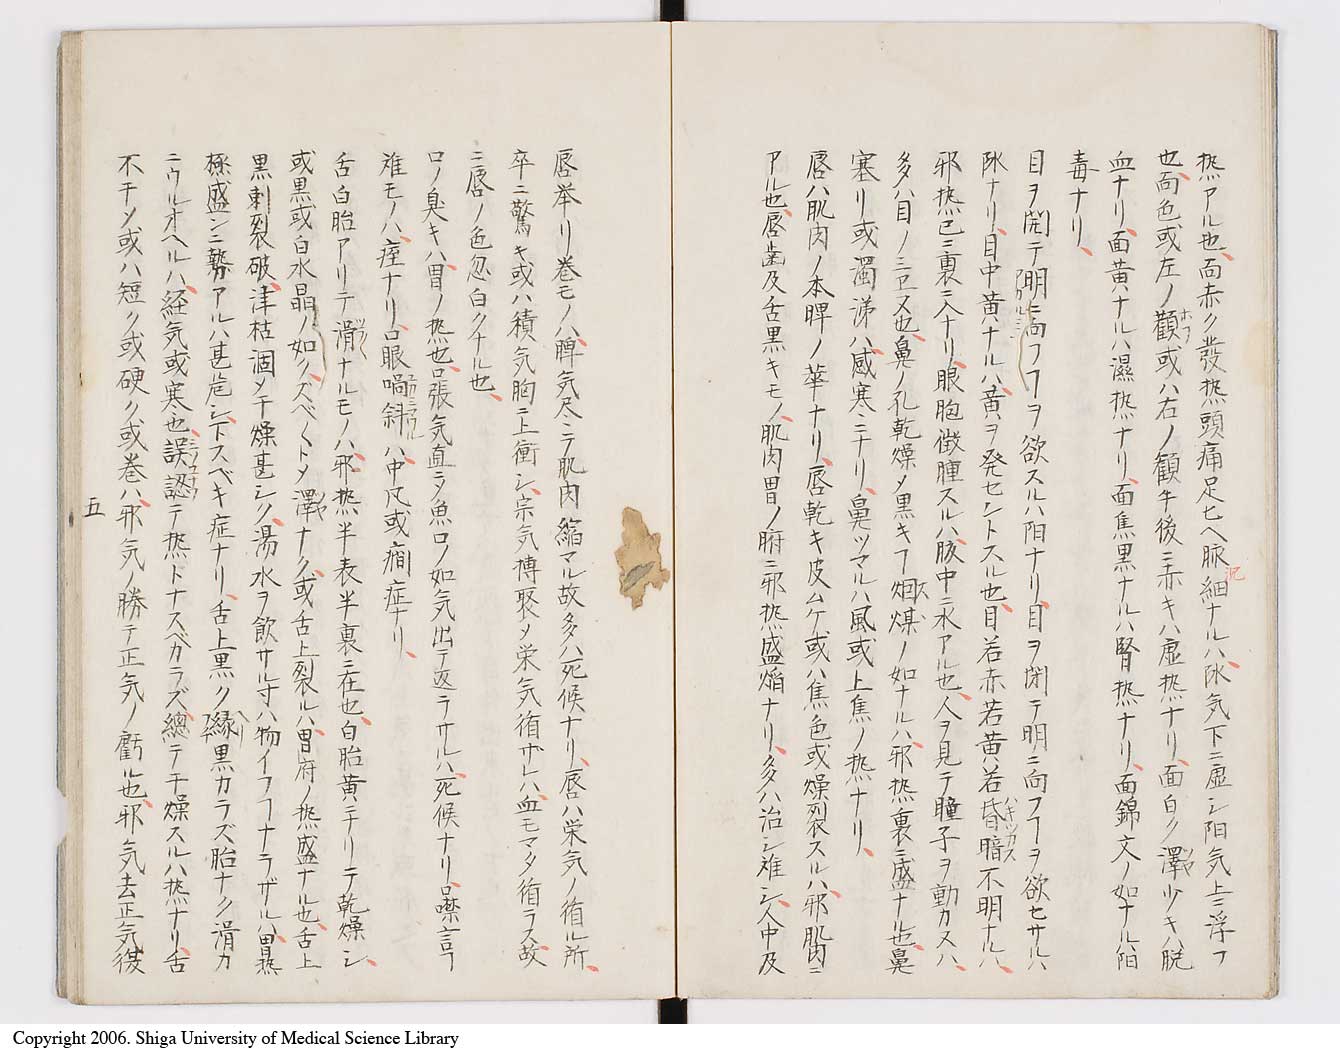 熱アル也、面赤ク發熱頭痛足ヒヘ脉細ナルハ、水気下ニ虚シ阳気上ニ浮フ
也、面色或左ノ顴或ハ右ノ顴午後ニ赤キハ虚熱ナリ、面白ク澤少キハ脱
血ナリ、面黄ハナルハ濕熱ナリ、面焦黒ナルハ腎熱ナリ、面錦文ノ如ナル阳
毒ナリ、
目ヲ開テ明ニ向フヿヲ欲スルハ阳ナリ、目ヲ閉テ明ニ向フヿヲ欲セサルハ
阴ナリ、目中黄ハナルハ、黄ヲ発セントスル也、目若赤若黄若昏暗不明ナルハ、
邪熱已ニ裏ニ入ナリ、眼胞微腫スルハ、胘中ニ水アル也、人ヲ見テ瞳子ヲ動カスハ、
多ハ目ノミエヌ也、鼻ノ孔乾燥メ黒キヿ烟煤ノ如ナルハ、邪熱裏ニ盛ナル也、鼻
塞リ或濁涕ハ、感寒ニナリ、鼻ツマルハ風或上焦ノ熱ナリ、
唇ハ肌肉ノ本脾ノ華ナリ、唇乾キ皮ムケ或ハ焦色或燥裂スルハ、邪肌肉ニ
アル也、唇歯及舌黒キモノ、肌肉胃ノ腑ニ邪熱盛熖ナリ、多ハ治シ难シ、人中及
唇挙リ巻モノハ、脾気尽ニテ肌肉縮マル故多ハ死候ナリ、唇ハ栄気ノ循ル所、
卒ニ驚キ或ハ積気胸ニ上衝シ、宗気搏聚メ栄気循ザレハ、血モマタ循ラス、故
ニ唇ノ色忽白クナル也、
口ノ臭キハ、胃ノ熱也、口張気直ニメ魚口ノ如気出テ返ラサルハ、死候ナリ、噤言フ
难モノハ、痓ナリ、口眼喎斜ハ、中风或癇症ナリ、
舌白胎アリテ滑ナルモノハ、邪熱半表半裏ニ在也、白胎黄ニナリテ乾燥シ、
或黒或白水晶ノ如ク、ズベ〱トメ澤ナク、或舌上裂ルハ、胃府ノ熱盛ナル也、舌上
黒刺裂破、津枯涸メ干燥甚シク、湯水ヲ飲サル寸ハ物イフヿナラザルハ、胃熱
極盛ンニ勢アルハ甚危シトスベキ症ナリ、舌上黒ク縁黒カラズ胎ナク滑カ
ニウルオヘルハ、経気或寒也、誤認テ熱トナスベカラズ、總テ干燥スルハ熱ナリ、舌
不干メ或ハ短ク或硬ク或巻ハ、邪気ノ勝テ正気ノ虧ル也、邪気去正気復
五